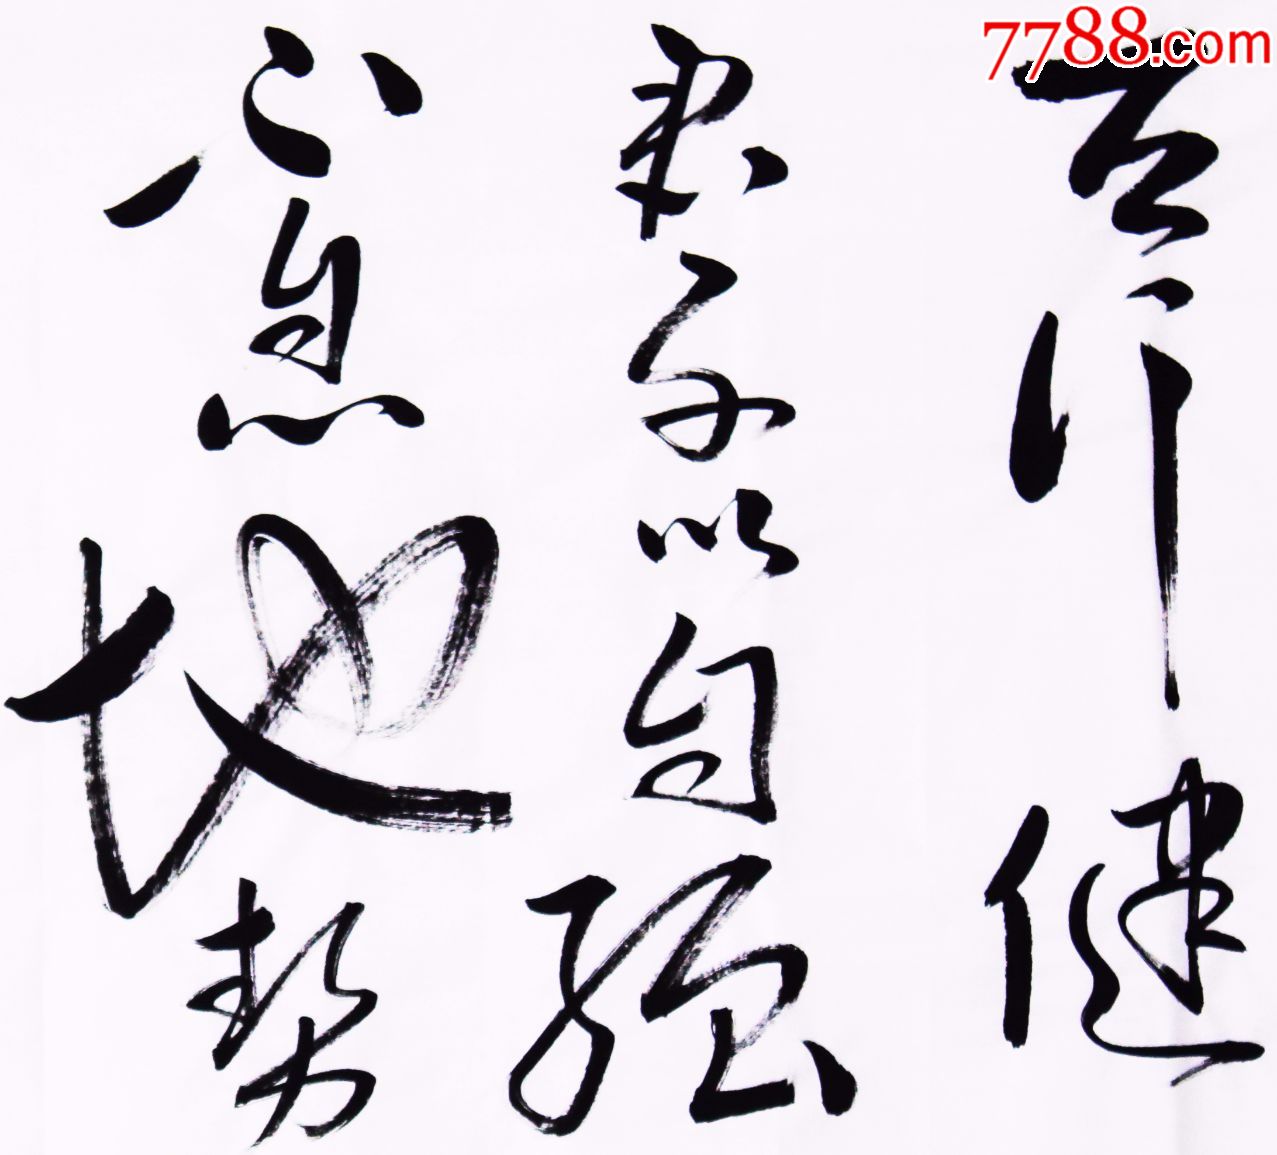 7788.com
天行健
君子以自强
不息地势